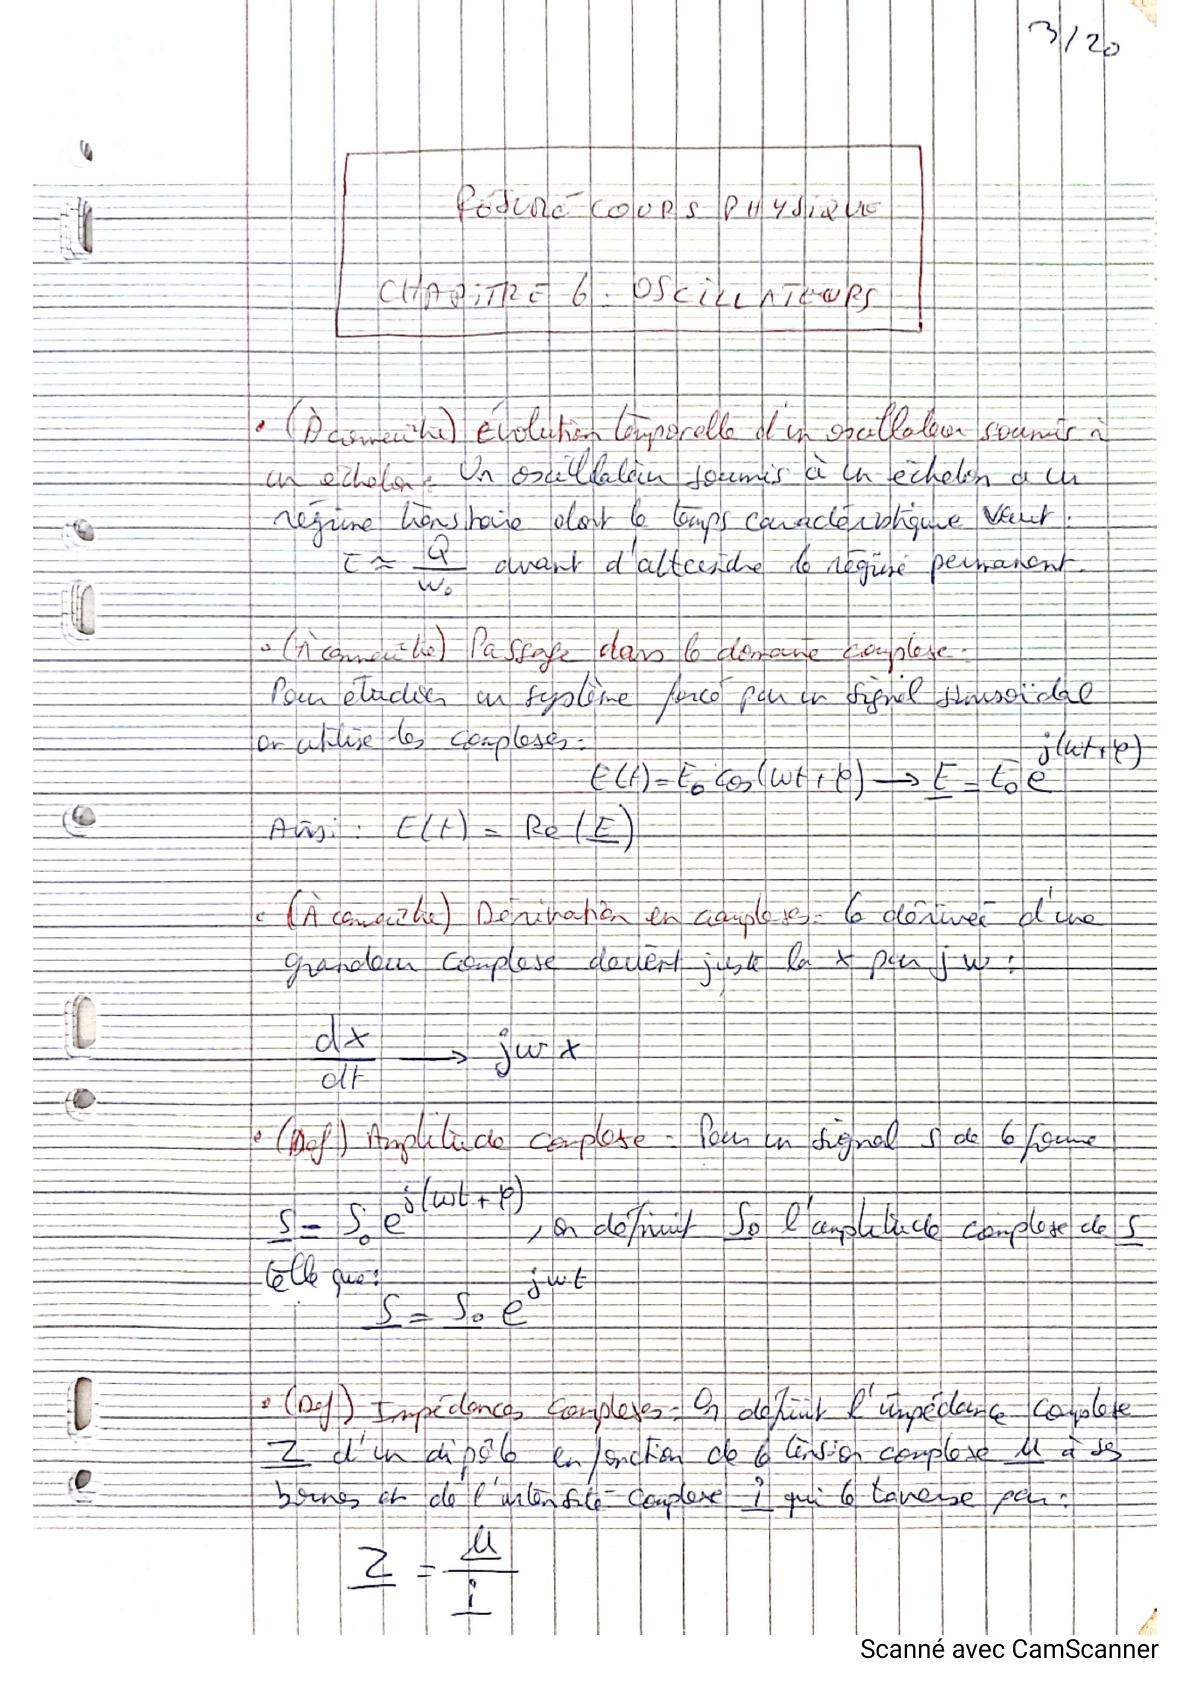 3/20
Résumé cours physique
CHAPITRE 6 : OSCILLATEURS
• (À connaître) Évolution temporelle d'un oscillateur soumis à
un échelon : Un oscillateur soumis à un échelon a un
régime transitoire dont le temps caractéristique vaut :
τ ≈ Q/ω₀ avant d'atteindre le régime permanent.
• (À connaître) Passage dans le domaine complexe :
Pour étudier un système forcé par un signal sinusoïdal
on utilise les complexes :
E(t) = E₀ cos(ωt + φ) → E̲ = E₀ e^{j(ωt+φ)}
Ainsi : E(t) = Re(E̲)
• (À connaître) Dérivation en complexes : la dérivée d'une
grandeur complexe devient juste la × par jω :
dx/dt → jωx
• (Def) Amplitude complexe : Pour un signal s de la forme
s̲ = S₀ e^{j(ωt + φ)}, on définit S̲₀ l'amplitude complexe de s̲
telle que :
s̲ = S̲₀ e^{jωt}
• (Def) Impédances complexes : On définit l'impédance complexe
Z̲ d'un dipôle en fonction de la tension complexe u̲ à ses
bornes et de l'intensité complexe i̲ qui le traverse par :
Z̲ = u̲/i̲
Scanné avec CamScanner